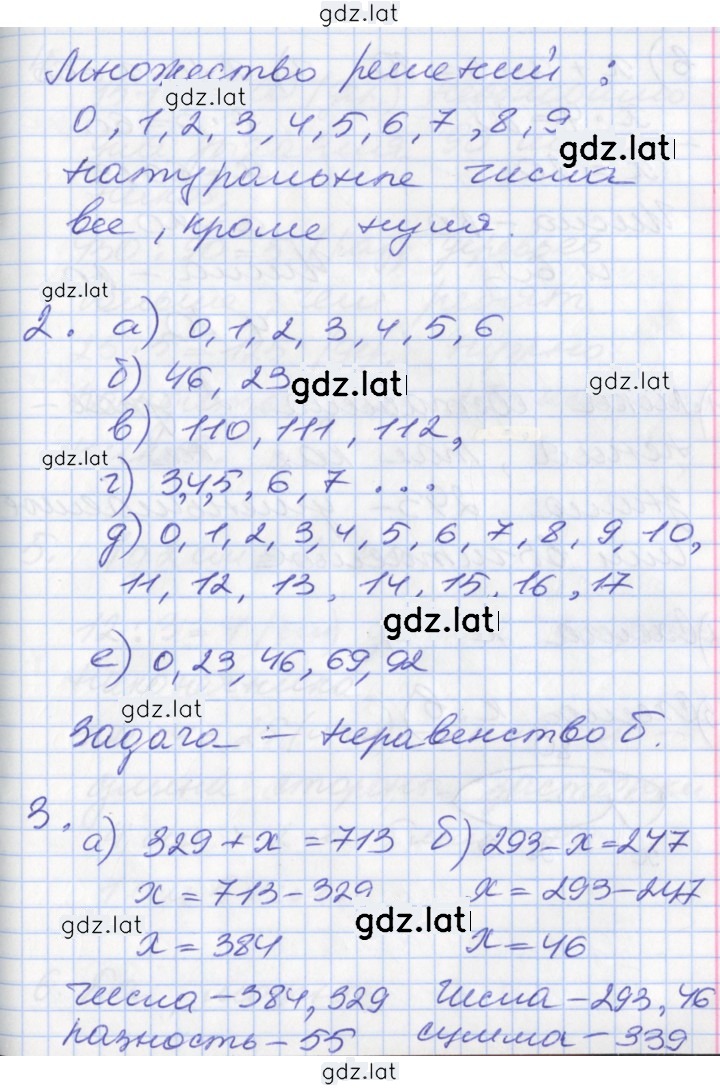 gdz.lat
Множество решений :
gdz.lat
0, 1, 2, 3, 4, 5, 6, 7, 8, 9
gdz.lat
натуральные числа
все, кроме нуля.
gdz.lat
2. а) 0, 1, 2, 3, 4, 5, 6
б) 46, 23
gdz.lat
gdz.lat
в) 110, 111, 112,
gdz.lat
г) 3,4,5, 6, 7 ...
д) 0, 1, 2, 3, 4, 5, 6, 7, 8, 9, 10,
11, 12, 13, 14, 15, 16, 17
gdz.lat
е) 0, 23, 46, 69, 92
gdz.lat
Задача – неравенство б.
3. а) 329 + x = 713 б) 293 – x = 247
x = 713 – 329 x = 293 – 247
gdz.lat
gdz.lat
x = 384 x = 46
числа – 384, 329 числа – 293, 46
разность – 55 сумма – 339
gdz.lat